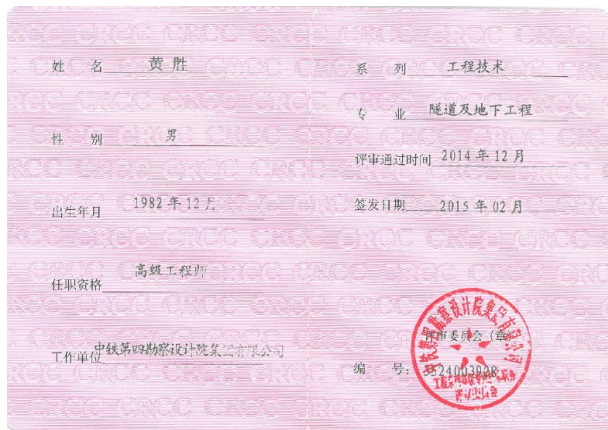 姓 名 黄胜
性 别 男
出生年月 1982年12月
任职资格 高级工程师
工作单位 中铁第四勘察设计院集团有限公司
系 列 工程技术
专 业 隧道及地下工程
评审通过时间 2014年12月
签发日期 2015年02月
评审委员会(章)
编 号: 3524003928